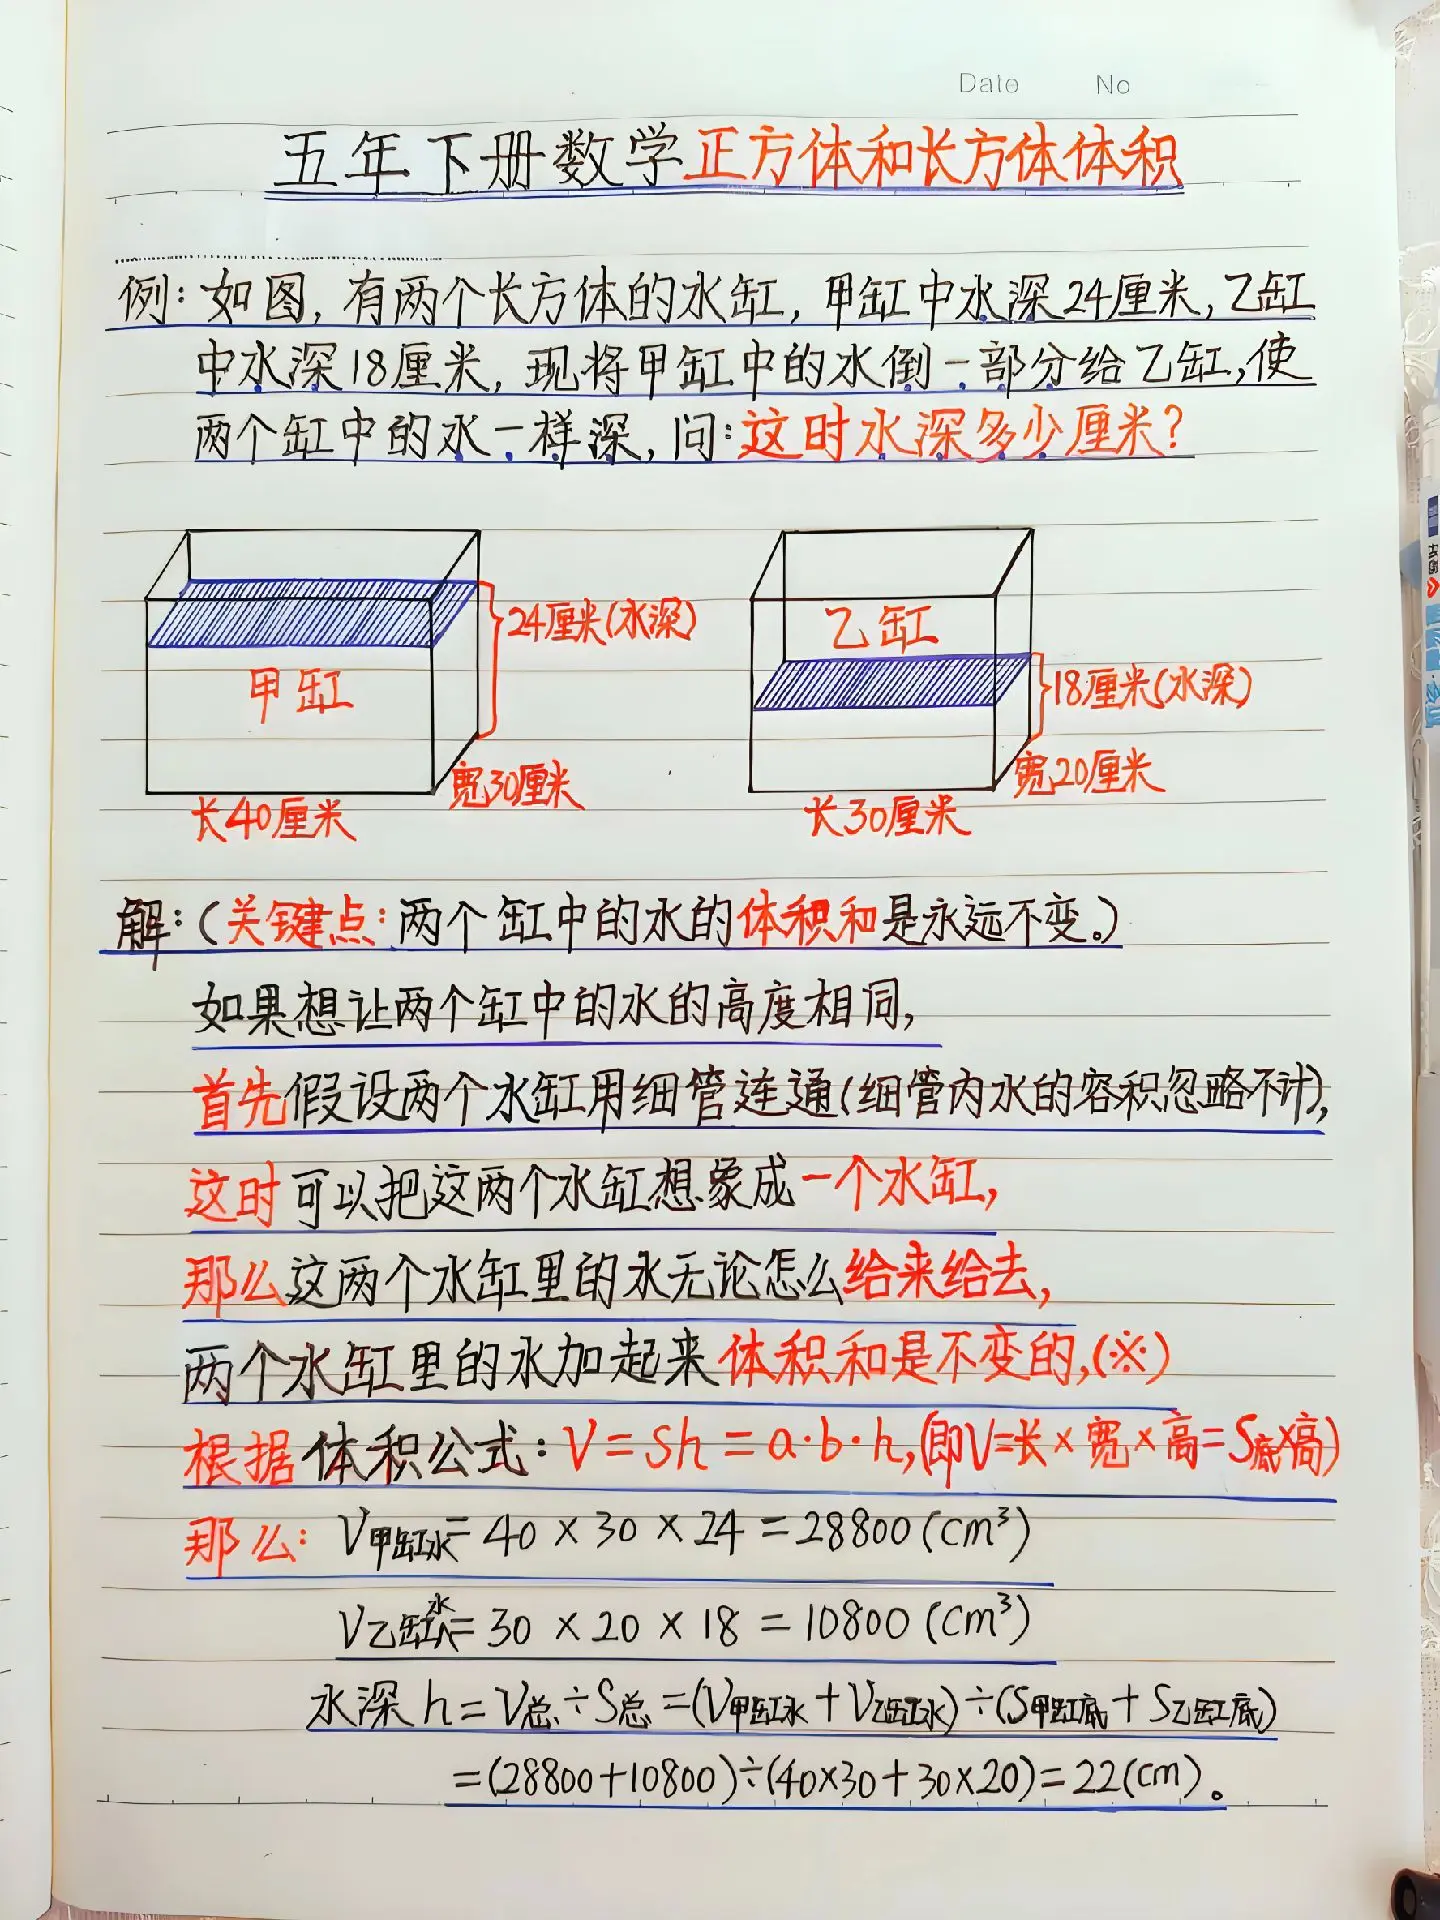 Date No
五年下册数学正方体和长方体体积
例:如图,有两个长方体的水缸,甲缸中水深24厘米,乙缸
中水深18厘米,现将甲缸中的水倒一部分给乙缸,使
两个缸中的水一样深,问:这时水深多少厘米?
24厘米(水深)
甲缸
宽30厘米
长40厘米
乙缸
18厘米(水深)
宽20厘米
长30厘米
解:(关键点:两个缸中的水的体积和是永远不变。)
如果想让两个缸中的水的高度相同,
首先假设两个水缸用细管连通(细管内水的容积忽略不计),
这时可以把这两个水缸想象成一个水缸,
那么这两个水缸里的水无论怎么给来给去,
两个水缸里的水加起来体积和是不变的,(※)
根据体积公式:V=sh=a·b·h,(即V=长×宽×高=S底×高)
那么:V甲缸水=40×30×24=28800(cm³)
V乙缸水=30×20×18=10800(cm³)
水深h=V总÷S总=(V甲缸水+V乙缸水)÷(S甲缸底+S乙缸底)
=(28800+10800)÷(40×30+30×20)=22(cm)。